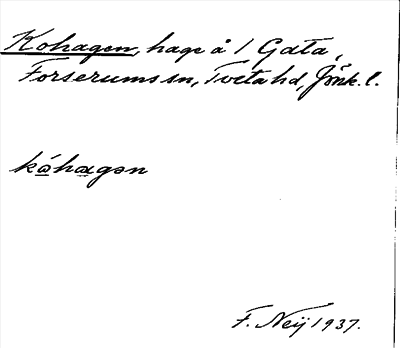 Kohagen, hage å 1 Gata,
Forserums sn, Tveta hd, Jönk. l.
kóhagən
F. Neij 1937.